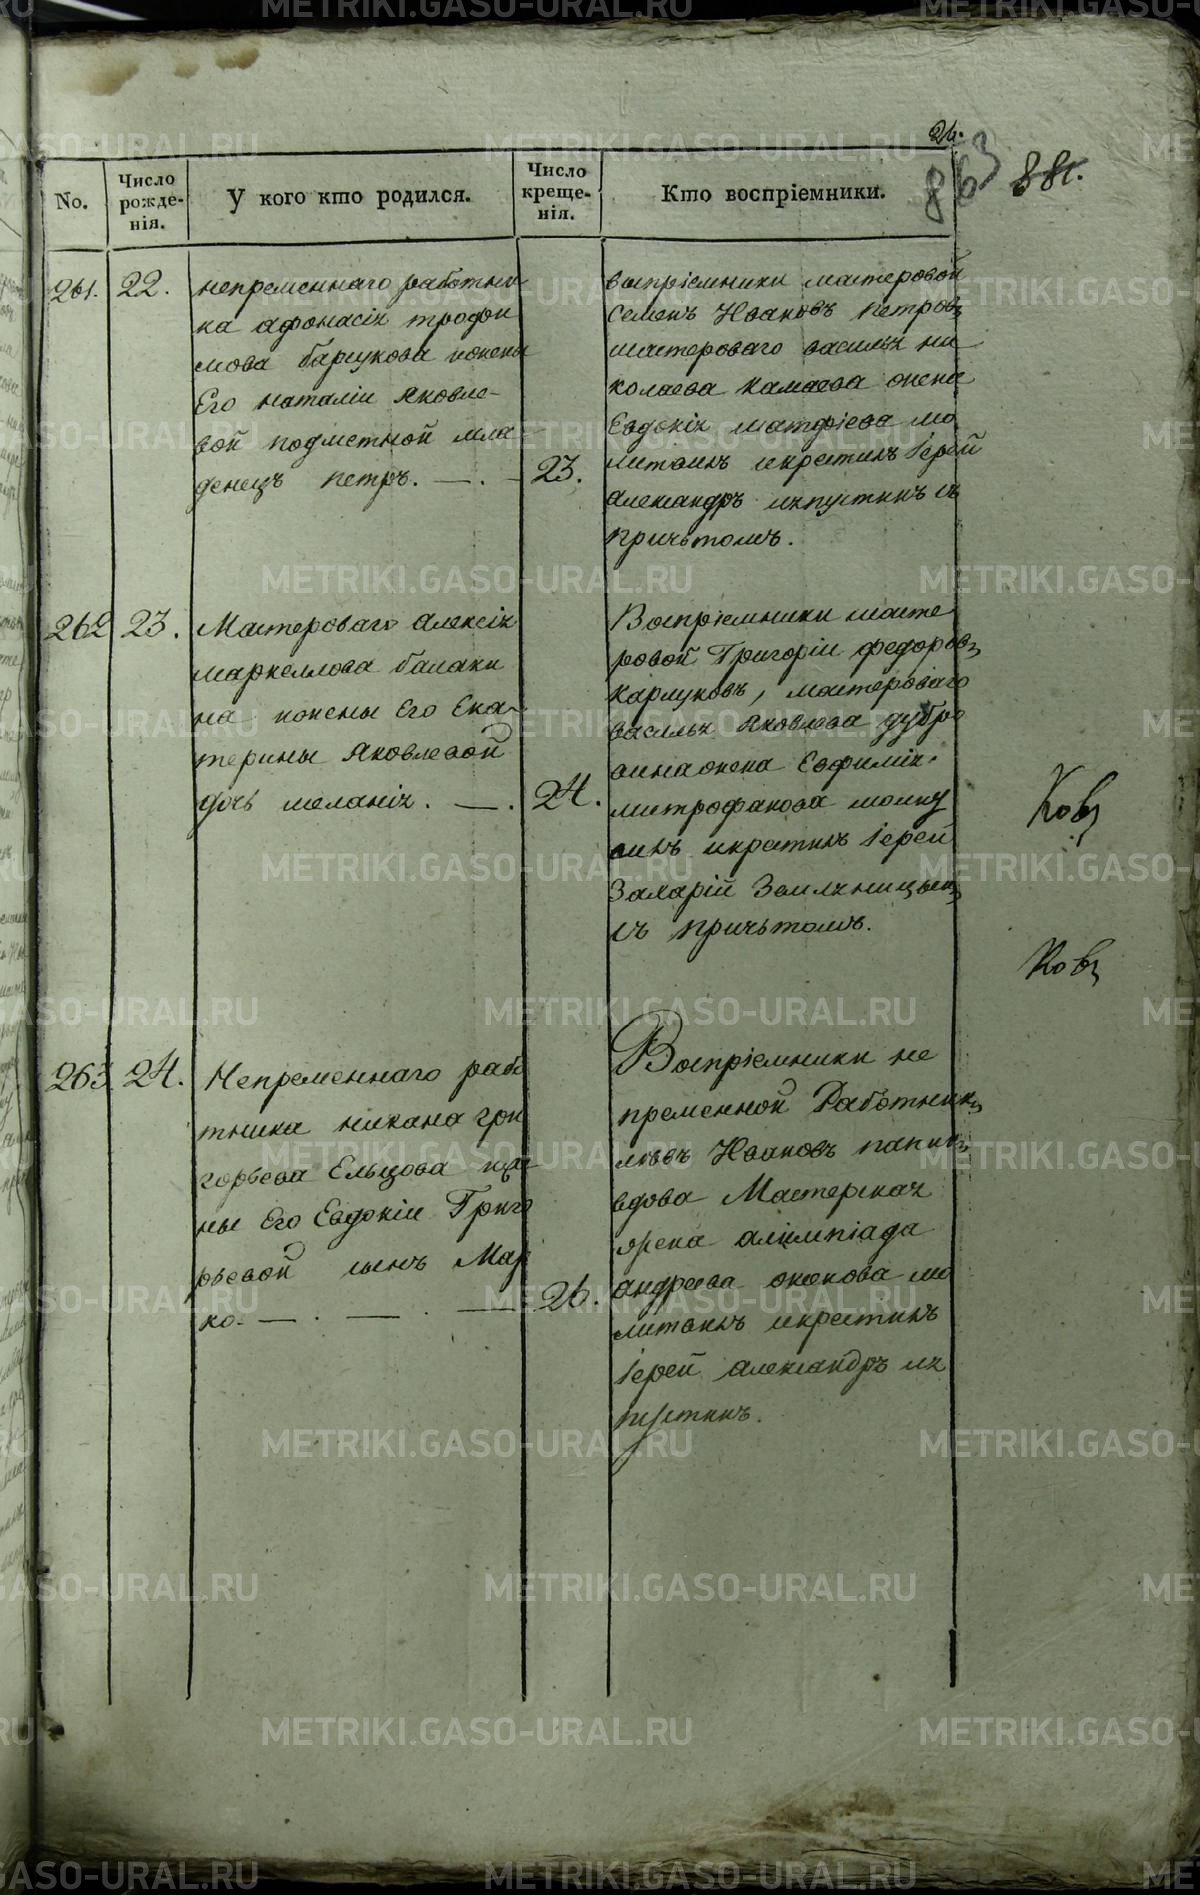 26.
863
881.
No.
Число рожде- нія.
У кого кто родился.
Число креще- нія.
Кто воспріемники.
261.
22.
непременнаго работни
ка афонасія трофи
мова барчукова ижены
Его наталіи яковле-
вой подметной мла
денецъ петръ.
23.
воспріемники мастеровой
Семенъ Ивановъ петровъ
мастероваго василья ни
колаева камаева жена
Евдокія матфіева мо
литвилъ икрестилъ Іерей
александръ ляпустинъ съ
причьтомъ.
262
23.
Мастероваго алексія
маркеллова балаки
на ижены Его Ека-
терины яковлевой
дочь меланія.
24.
Воспріемники масте
ровой Григоріи федоровъ
карлуковъ, мастероваго
василья яковлева дубро
вина жена Евфимія
митрофанова молит
вилъ икрестилъ Іерей
Захарій Земляницынъ
съ причьтомъ.
Ковъ
Ковъ
263
24.
Непременнаго рабо
тника никана гри
горьева Ельцова иже
ны Его Евдокіи Григо
рьевой сынъ Мар
ко.
26.
Воспріемники не
пременной Работникъ
левъ Ивановъ папинъ
вдова Мастерская
алимпіада
андреева мо
литвилъ икрестилъ
Іерей александръ ля
пустинъ.
METRIKI.GASO-URAL.RU